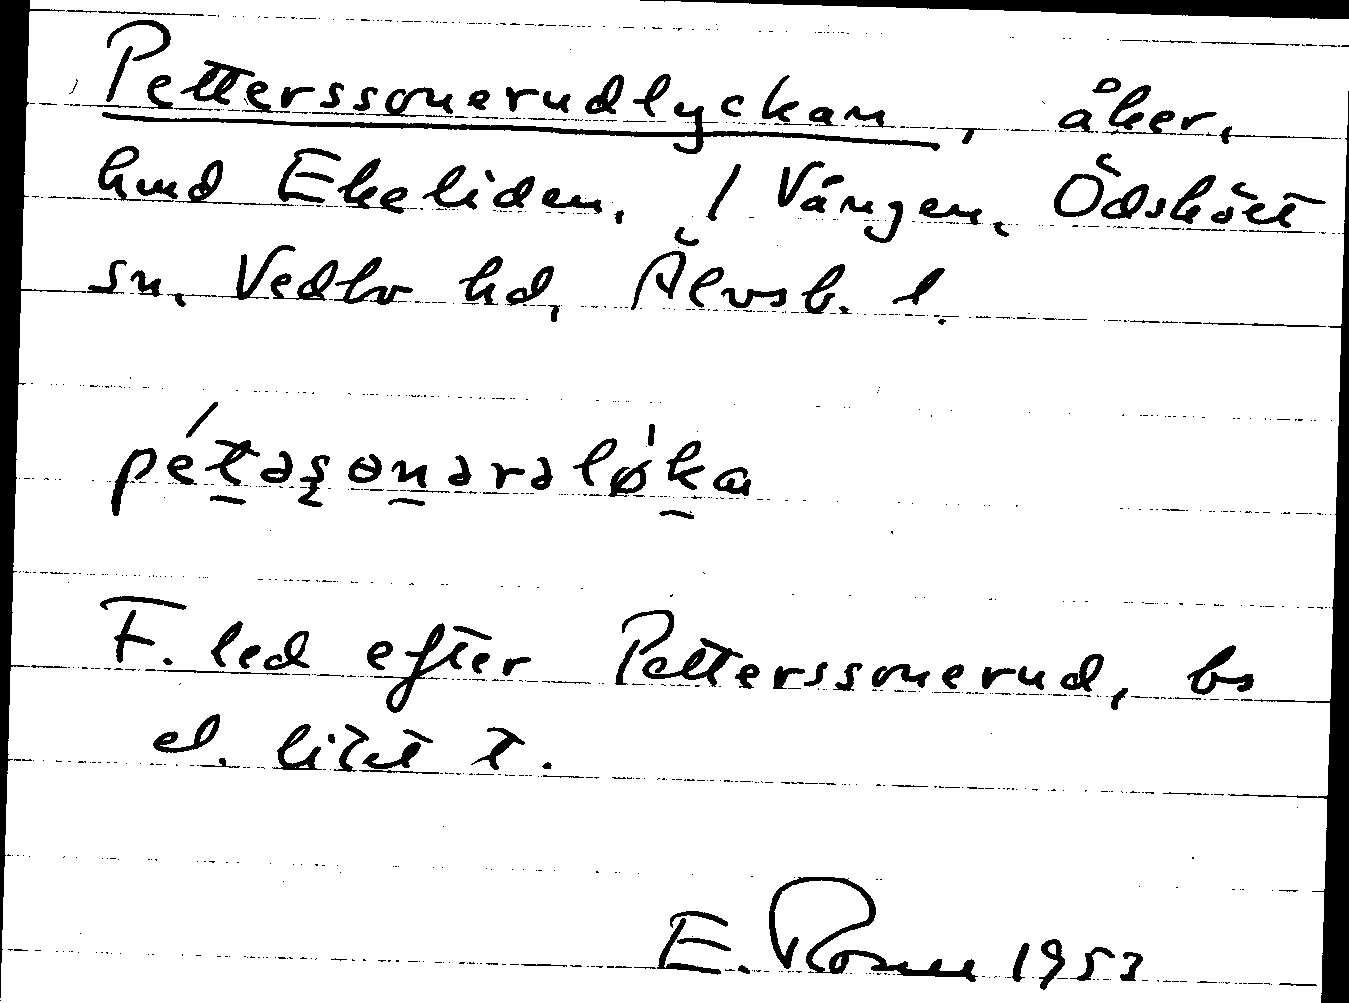 Petterssonerudlyckan, åker,
hmd Ekeliden, 1 Vången, Ödskölt
sn, Vedbo hd, Älvsb. l.
pétəsonərəløka
F. led efter Petterssonerud, bs
el. litet t.
E. 1953